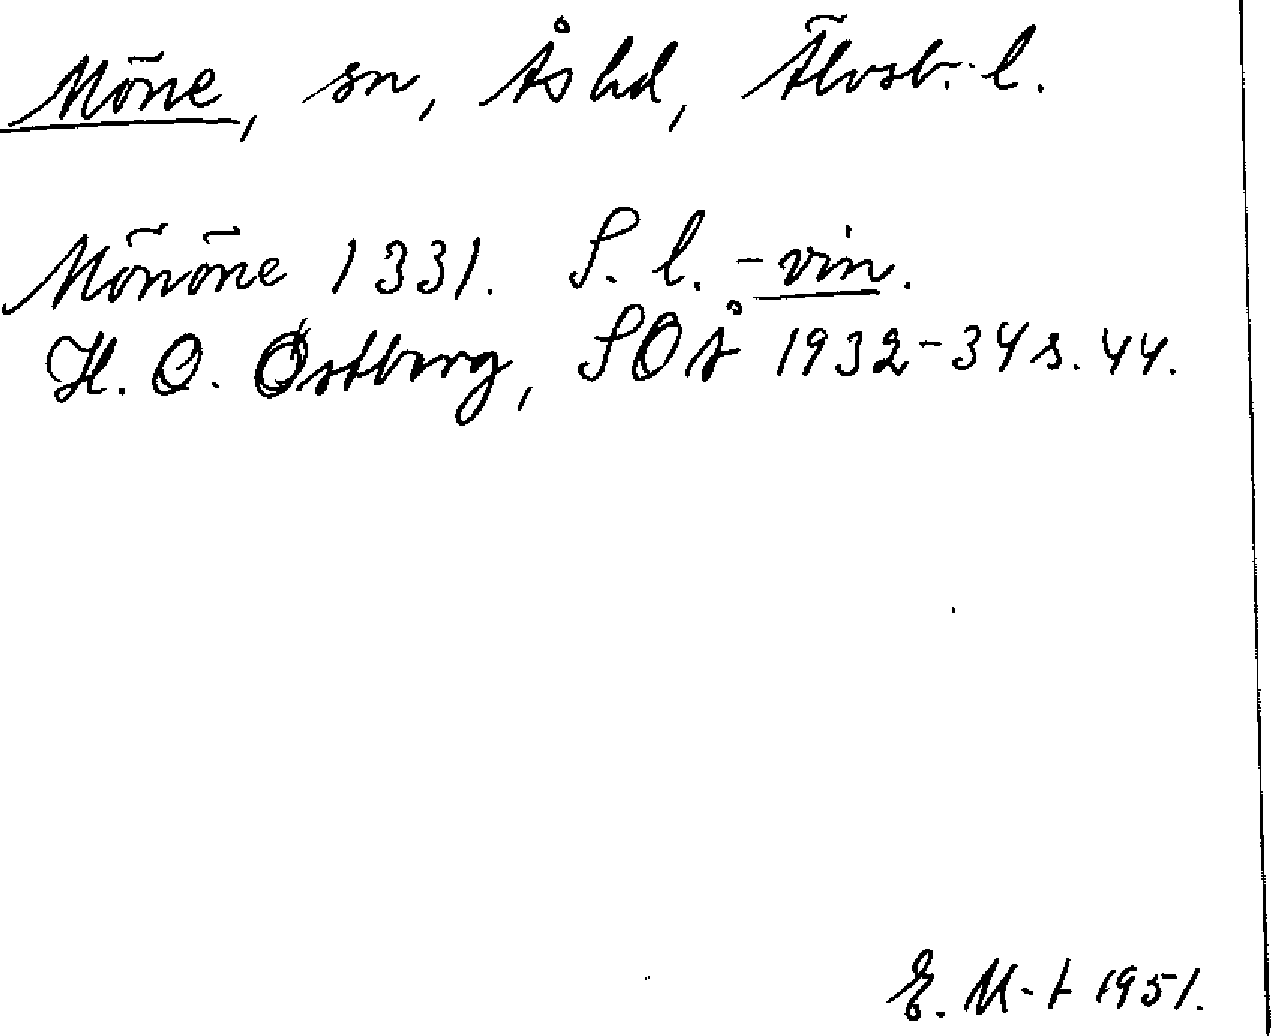 Möne, sn, Ås hd, Älvsb. l.
Mönöne 1331. S. l. -vin.
H. O. Østberg, SOÅ 1932-34 s. 44.
E. M-t 1951.